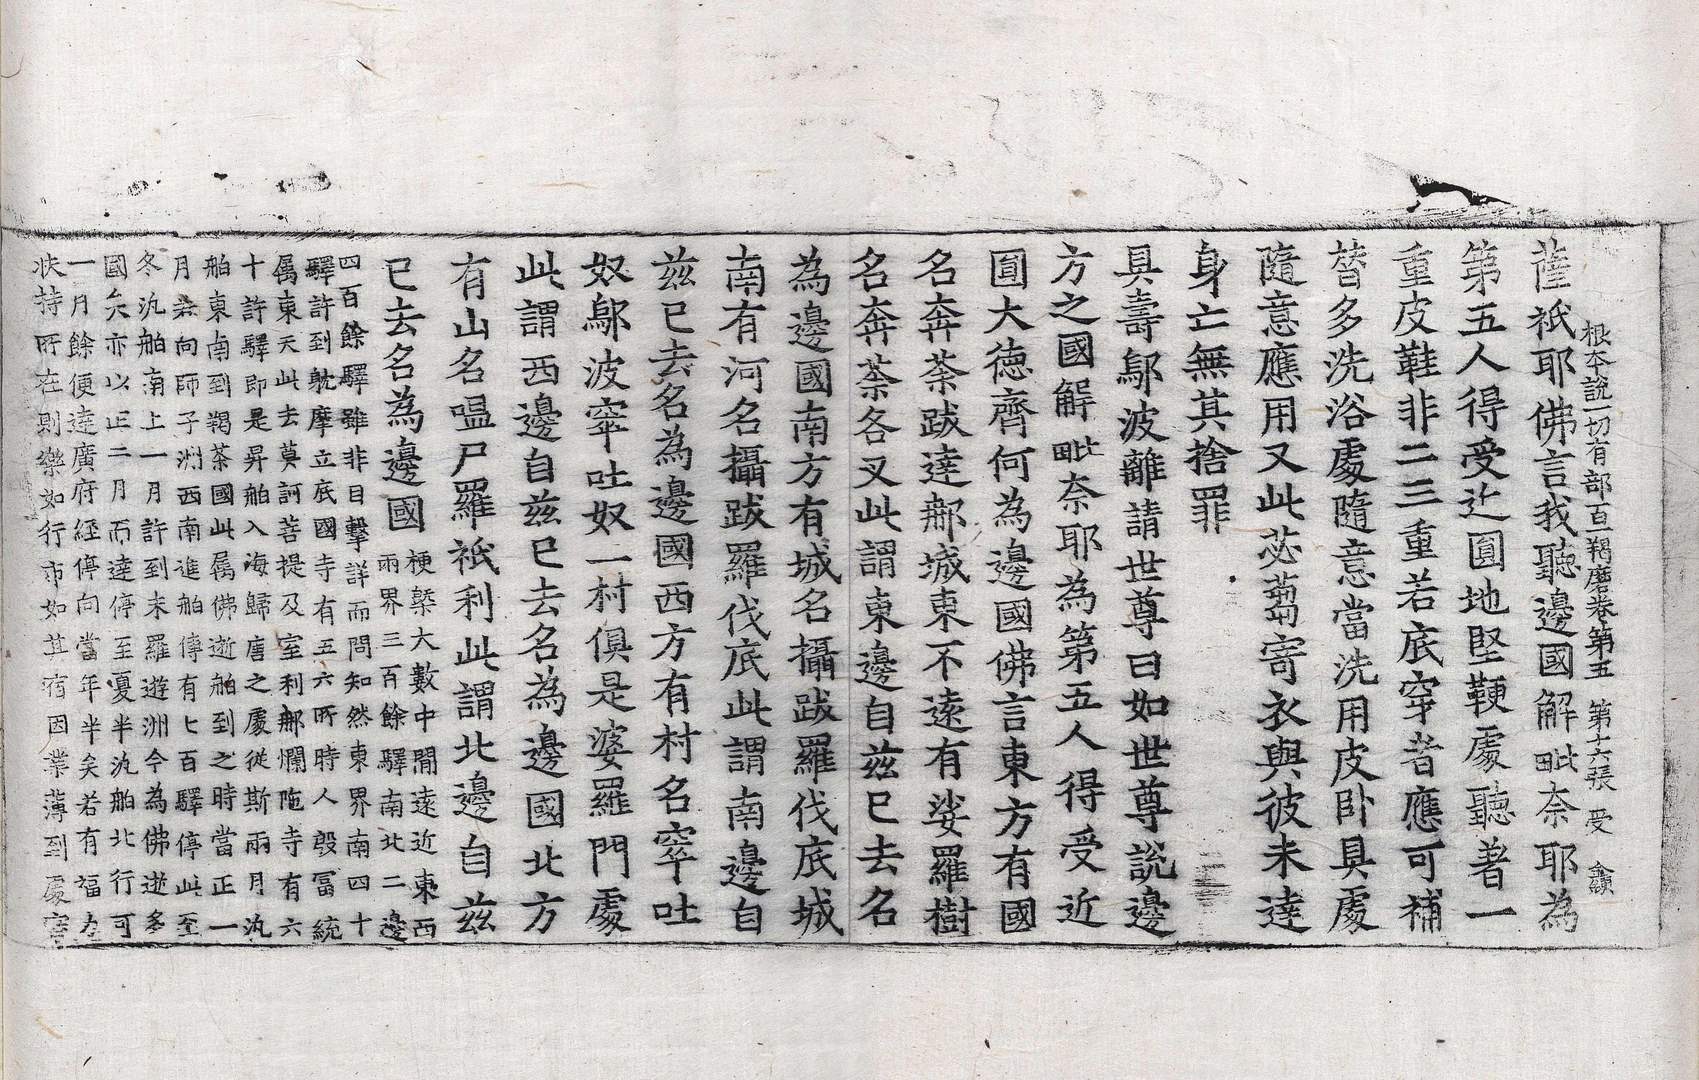 根本說一切有部百一羯磨卷第五 第十六張 受
薩祇耶佛言我聽邊國解毗奈耶為
第五人得受近圓地堅鞕處聽著一
重皮鞋非二三重若底穿者應可補
替多洗浴處隨意當洗用皮卧具處
隨意應用又此苾芻寄衣與彼未達
身亡無其捨罪
具壽鄔波離請世尊曰如世尊說邊
方之國解毗奈耶為第五人得受近
圓大德齊何為邊國佛言東方有國
名奔荼跋達那城東不遠有娑羅樹
名奔荼各叉此謂東邊自茲已去名
為邊國南方有城名攝跋羅伐底城
南有河名攝跋羅伐底此謂南邊自
茲已去名為邊國西方有村名窣吐
奴鄔波窣吐奴一村俱是婆羅門處
此謂西邊自茲已去名為邊國北方
有山名嗢尸羅祇利此謂北邊自茲
已去名為邊國
梗槩大數中閒遠近東西
兩界三百餘驛南北二邊
四百餘驛雖非目擊詳而問知然東界南四十
驛許到躭摩立底國寺有五六所時人殷冨統
属東天此去莫訶菩提及室利那爛陁寺有六
十許驛即是昇舶入海歸唐之處從斯兩月汎
舶東南到羯荼國此属佛逝舶到之時當正一
月若向師子洲西南進舶傳有七百驛停此至
冬汎舶南上一月許到末羅遊洲今為佛逝多
國矣亦以正二月而達停至夏半汎舶北行可
一月餘便達廣府經停向當年半矣若有福力
扶持所在則樂如行市如其宿因業薄到處